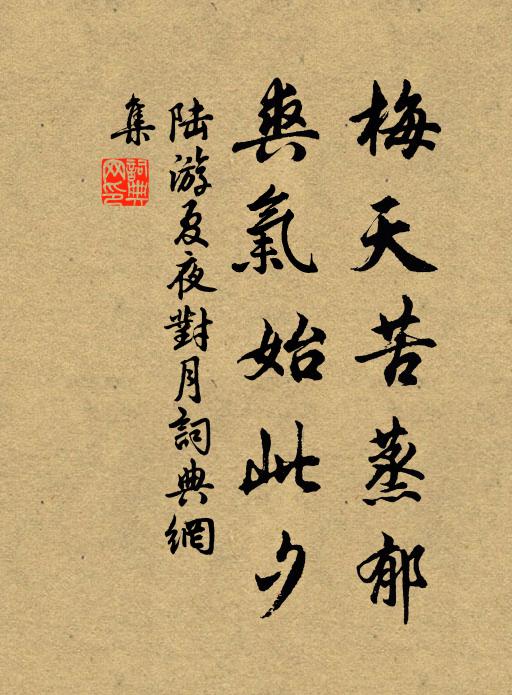 梅天苦蒸郁
爽氣始此夕
陆游夏夜對月詞典網
集
詞典
网印